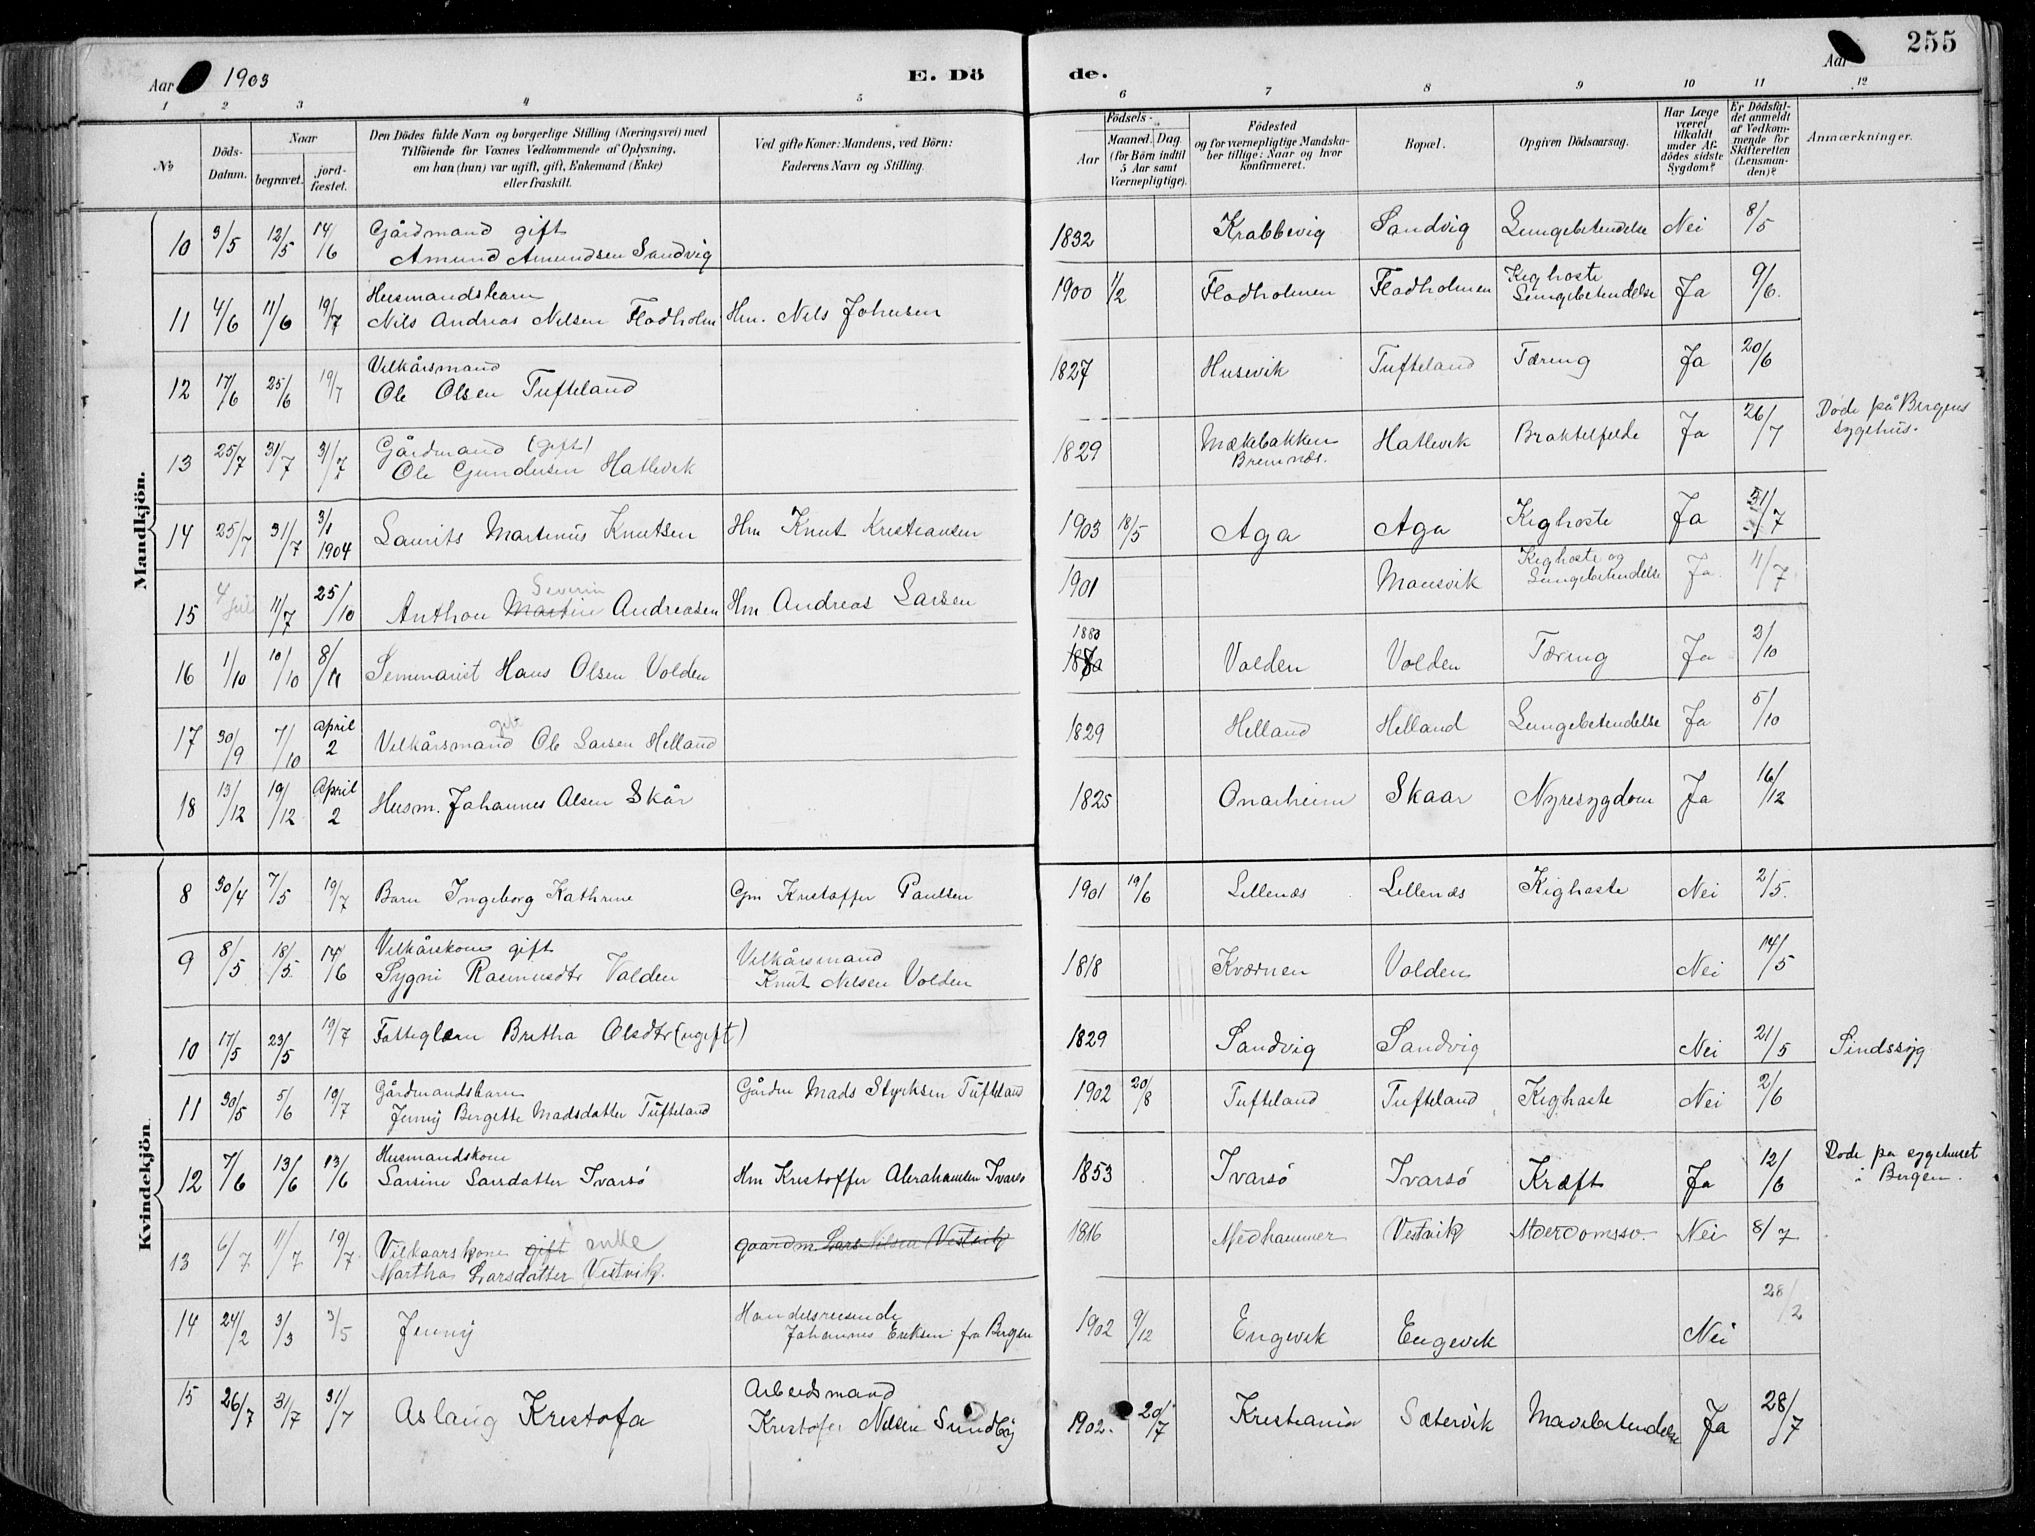 Aar 1903
E. Dö
de.
Aar
255
1 2 3 4 5 6 7 8 9 10 11 12
No
Döds-Datum.
Naar
begravet.
jord-fæstet.
Den Dödes fulde Navn og borgerlige Stilling (Næringsvei) med
Tilföiende for Voxnes Vedkommende af Oplysning,
om han (hun) var ugift, gift, Enkemand (Enke)
eller fraskilt.
Ved gifte Koner: Mandens, ved Börn:
Faderens Navn og Stilling.
Födsels-
Aar
Maaned. Dag.
(for Börn indtil
5 Aar samt
Værnepligtige).
Födested
og for værnepligtige Mandska-
ber tillige: Naar og hvor
konfirmeret.
Bopæl.
Opgiven Dödsaarsag.
Har Læge
været
tilkaldt
under Af-
dödes sidste
Sygdom?
Er Dödsfal-
det anmeldt
af Vedkom-
mende for
Skifteretten
(Lensman-
den)?
Anmærkninger.
Mandkjön.
10 3/5 12/5 14/6 Gårdmand gift
Amund Amundsen Sandvig
1832 Krabbevig Sandvig Lungebetendelse Nei 8/5
11 4/6 11/6 19/7 Husmandsbarn
Nils Andreas Nilsen Flodholm Hm. Nils Johnsen
1900 1/2 Flodholmen Flodholmen Kighoste
Lungebetendelse Ja 9/6.
12 17/6 25/6 19/7 Vilkårsmand
Ole Olsen Tufteland
1827 Husevik Tufteland Tæring Ja 20/6
13 25/7 31/7 31/7 Gårdmand (gift)
Ole Gundersen Hatlevik
1829 Mækebakken
Bremnæs. Hatlevik Braktilfelde Ja 26/7 Døde på Bergens
sygehus.
14 25/7 31/7 3/1
1904 Laurits Martinus Knutsen Hm Knut Kristiansen
1903 18/5 Aga Aga Kighoste Ja 31/7
15 4 Juli 11/7 25/10 Severin
Anthon Martin Andreasen Hm Andreas Larsen
1901 Mansvik Kighoste og
Lungebetendelse Ja 11/7
16 1/10 10/10 8/11 Seminarist Hans Olsen Volden
1880
Volden Volden Tæring Ja 3/10
17 30/9 7/10 April
2 gift
Vilkårsmand Ole Larsen Helland
1829 Helland Helland Lungebetendelse Ja 5/10
18 13/12 19/12 April
2 Husm. Johannes Olsen Skår
1825 Onarheim Skaar Nyresygdom Ja 16/12
Kvindekjön.
8 30/4 7/5 19/7 Barn Ingeborg Kathrine Gm Kristoffer Paulsen
1901 19/6 Lillenæs Lillenæs Kighoste Nei 2/5.
9 8/5 18/5. 14/6 Vilkårskone gift
Sygni Rasmusdtr Volden Vilkårsmand
Knut Nilsen Volden
1818 Kværnen Volden Nei 14/5
10 17/5 23/5 19/7 Fattiglem Britha Olsdtr (ugift)
1829 Sandvig Sandvig Nei 21/5 Sindssyg
11 30/5 5/6 19/7 Gårdmandsbarn
Jenny Bergitte Madsdatter Tufteland Gårdm Mads Styrksen Tufteland
1902 20/8 Tufteland Tufteland Kighoste Nei 2/6
12 7/6 13/6 13/6 Husmandskone
Larsine Larsdatter Ivarsø Hm Kristoffer Abrahamsen Ivarsø
1853 Ivarsø Ivarsø Kræft Ja 12/6 Døde paa sygehuset
i Bergen.
13 6/7 11/7 19/7 Vilkaarskone gift enke
Martha Larsdatter Vestvik. gaardm. Lars Nilsen Vestvik
1816 Medhammer Vestvik Alderdomssv. Nei 8/7
14 24/2 3/3 3/5 Jenny Handelsreisende
Johannes Eriksen fra Bergen
1902 9/12 Engevik Engevik Nei 28/2
15 26/7 31/7 31/7 Aslaug Kristofa Arbeidsmand
Kristofer Nilsen Sundby
1902. 20/7 Kristiania Sætervik Mavebetendelse Ja 28/7